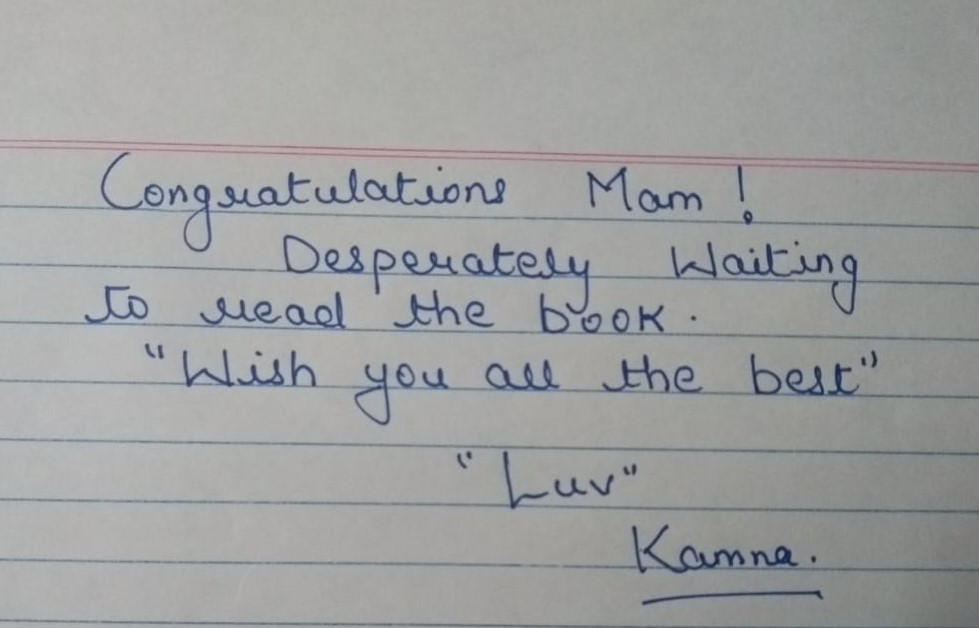 Congratulations Mam!
Desperately Waiting
to read the book.
"Wish you all the best"
"Luv"
Kamna.